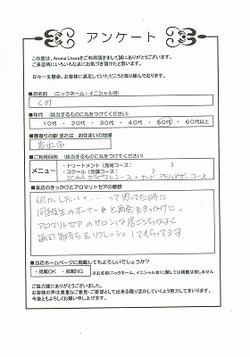 アンケート
この度は、Aroma Lisaaをご利用頂きまして誠にありがとうございます。
ご来店時にいろいろな点にお気づき頂けたかと思います。
日々一生懸命、お客様に満足していただこうと取り組んでおります。
■お名前 (ニックネーム・イニシャル可)
■年代 (該当するものに丸をつけてください)
10代 ・ 20代 ・ 30代 ・ 40代 ・ 50代 ・ 60代以上
■最寄りの駅または お住まいの地域
■ご利用目的 (該当するものに丸をつけてください)
メニュー
・トリートメント (施術コース: )
・スクール (受講コース: )
■来店のきっかけとアロマリトセアの感想
何かしたい・・・って思ってた時に
同級生のオーナーと再会をきっかけに
アロマリトセアのサロンは居ごこちがよく
毎回気持ちもリフレッシュしてもらってます
■当店ホームページに掲載してもよろしいでしょうか?
・掲載OK ・掲載NG
ご協力誠にありがとうございました。
お客様の声は貴重なご意見・ご要望として出来る限り活かしていくよう努力してまいります。
今後ともよろしくお願い申し上げます。